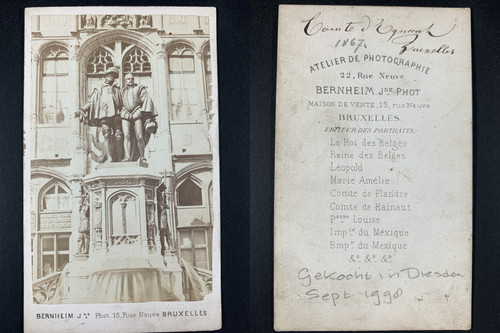 BERNHEIM Jne Phot. 15, Rue Neuve BRUXELLES.
Comte d'Egmont
1867. Bruxelles
ATELIER DE PHOTOGRAPHIE
22, Rue Neuve
BERNHEIM JNE PHOT
MAISON DE VENTE, 15, rue Neuve
BRUXELLES.
EDITEUR DES PORTRAITS:
Le Roi des Belges
Reine des Belges
Léopold
Marie Amélie
Comte de Flandre
Comte de Hainaut
Pesse Louise
Impce du Méxique
Empr du Mexique
&a. &a. &a.
Gekocht in Dresden
Sept. 1998